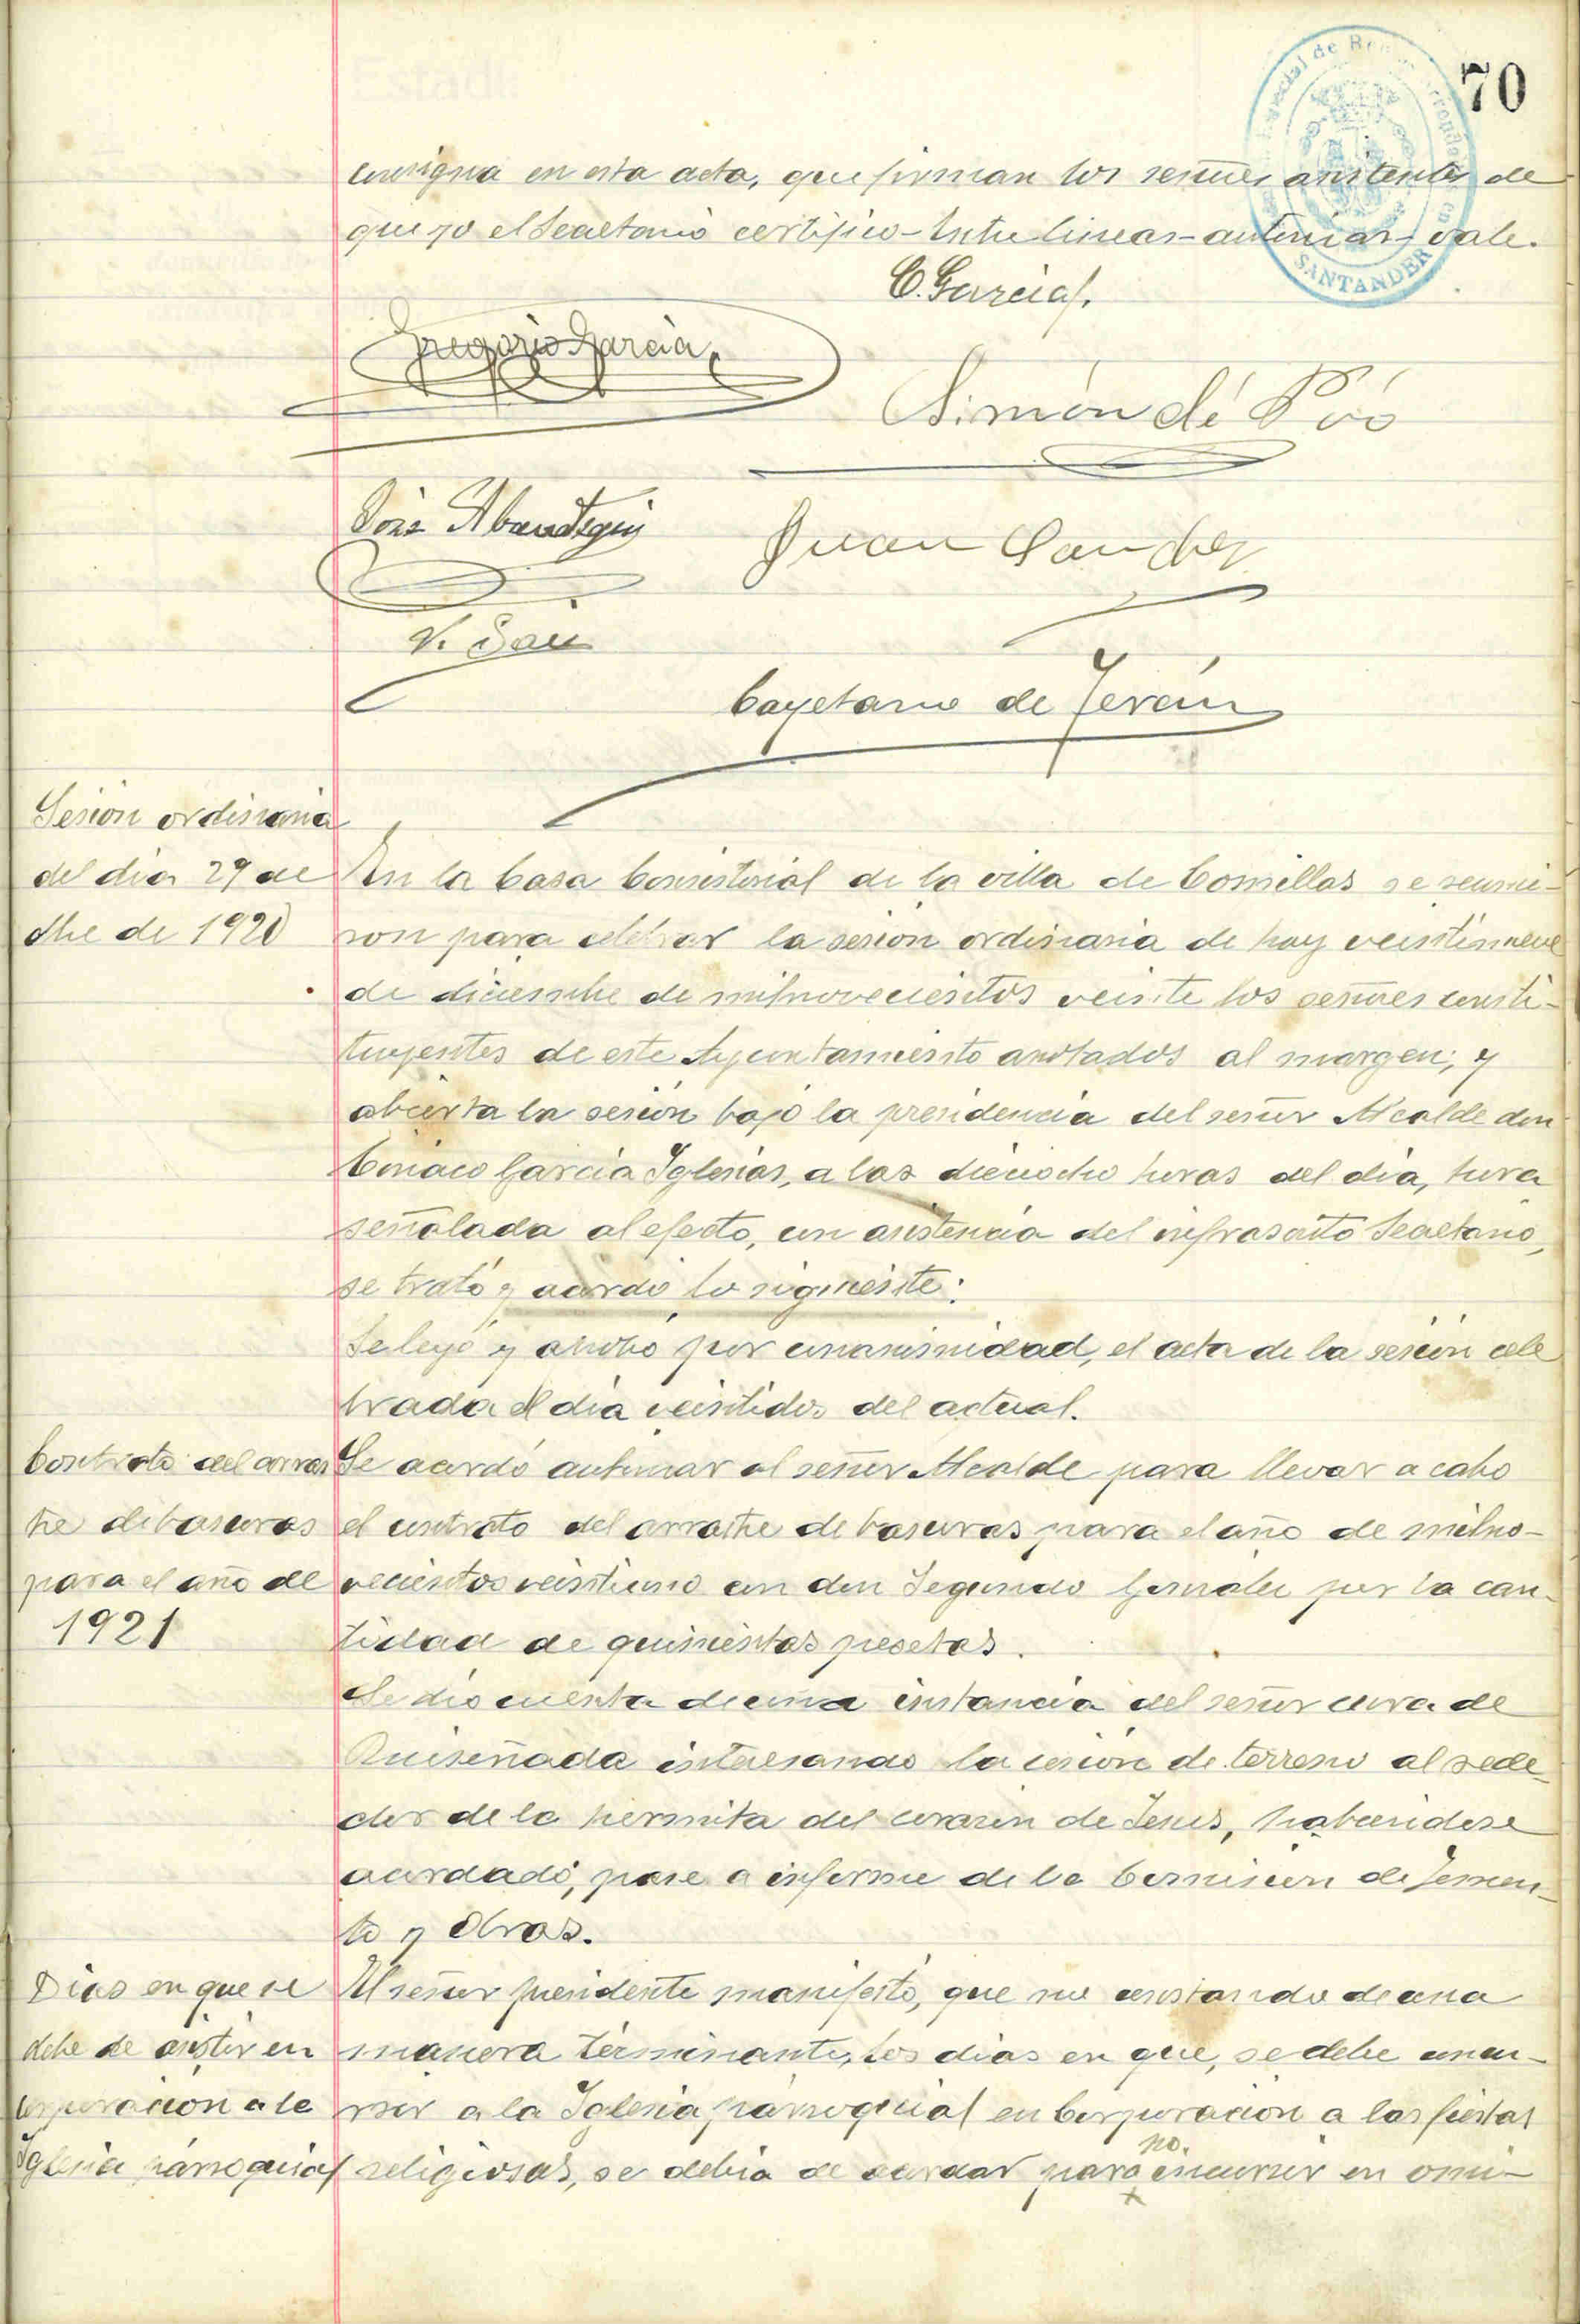 70
SANTANDER
consigna en esta acta, que firman los señores asistentes de
que yo el Secretario certifico - Entre lineas - anteriores - vale.
C. García
Gregorio Garcia
Simón de Póo
Juan Sanchez
Cayetano de Terán
Sesión ordinaria
del dia 29 de
dbre de 1920
En la Casa Consistorial de la villa de Comillas se reunie-
ron para celebrar la sesion ordinaria de hoy veintinueve
de diciembre de mil novecientos veinte los señores consti-
tuyentes de este Ayuntamiento anotados al margen; y
abierta la sesión bajo la presidencia del señor Alcalde don
Ciriaco García Iglesias, a las dieciocho horas del dia, hora
señalada al efecto, con asistencia del infrascrito Secretario,
se trató y acordó lo siguiente:
Se leyó y aprobó por unanimidad, el acta de la sesión cele
brada el día veintidos del actual.
Contrato del arras
tre de basuras
para el año de
1921
Se acordó autorizar al señor Alcalde para llevar a cabo
el contrato del arrastre de basuras para el año de milno-
vecientos veintiuno con don Segundo por la can-
tidad de quinientas pesetas.
Se dio cuenta de una instancia del señor cura de
Ruiseñada interesando la cesión de terreno al rede
dor de la hermita del corazón de Jesús, habiendose
acordado, pase a informe de la Comision de Fomen-
to y Obras.
Dias en que se
debe de asistir en
corporación a la
Iglesia parroquial
El señor presidente manifestó, que no constando de una
manera terminante, los dias en que, se debe concu-
rrir a la Iglesia parroquial en Corporación a las fiestas
religiosas, se debia de acordar para no incurrir en omi-